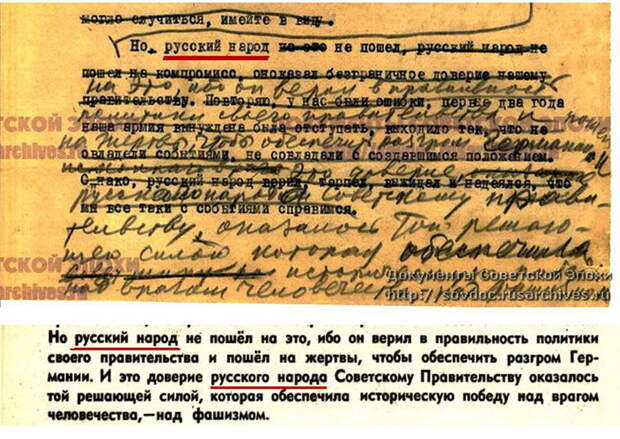 могло случиться, имейте в виду.
Но, русский народ на это не пошел, русский народ не
пошел на компромисс, он оказал безграничное доверие нашему
на это, ибо он верил в правильность
правительству. Повторяю, у нас были ошибки, первые два года
политики своего правительства и пошел
наша армия вынуждена была отступать, выходило так, что не
на жертвы, чтобы обеспечить разгром Германии. И
овладели событиями, не совладали с создавшимся положением.
это доверие
Однако, русский народ верил, терпел, выжидал и надеялся, что
русского народа Советскому прави-
мы все таки с событиями справимся.
тельству, оказалось той решаю-
щей силой, которая обеспечила
историч
над врагом человечества, – над фашизмом
ТСКОЙ ЭПОХИ
archives.ru
Документы Советской Эпохи
http://sovdoc.rusarchives.ru
Но русский народ не пошёл на это, ибо он верил в правильность политики
своего правительства и пошёл на жертвы, чтобы обеспечить разгром Гер-
мании. И это доверие русского народа Советскому Правительству оказалось
той решающей силой, которая обеспечила историческую победу над врагом
человечества,—над фашизмом.